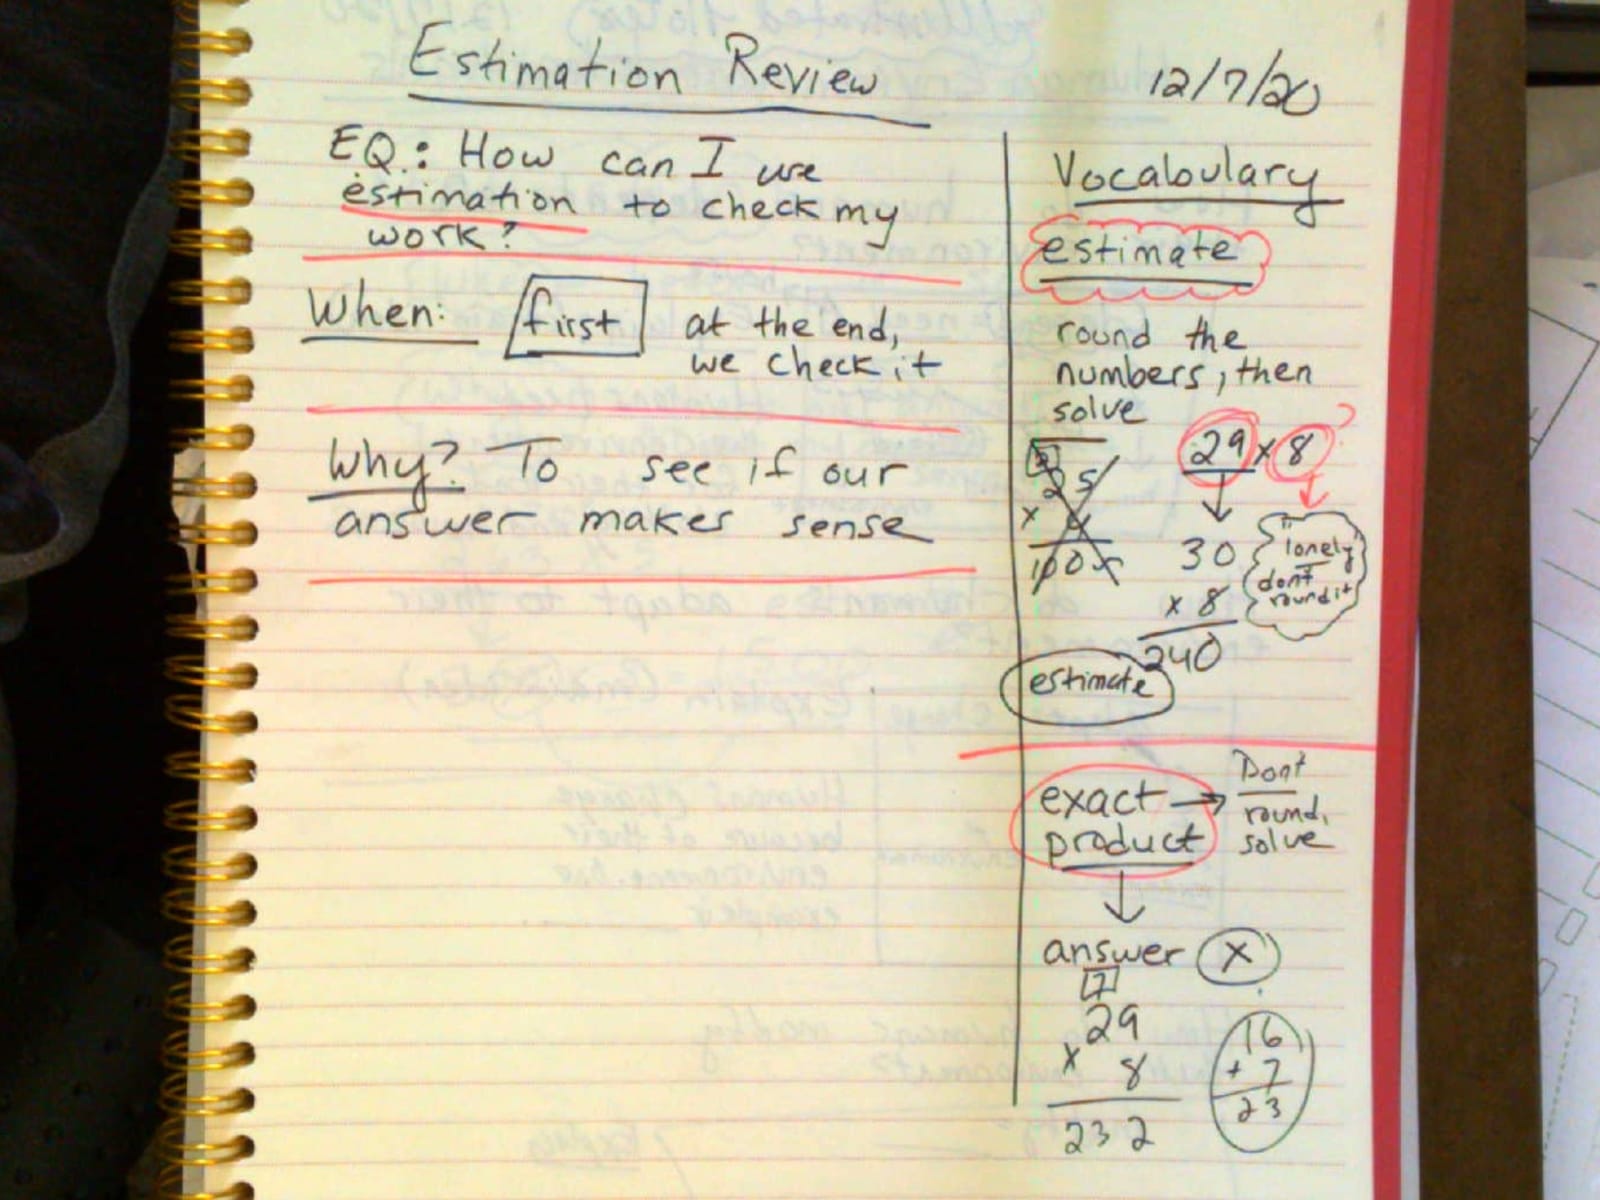 Estimation Review
12/7/20
EQ: How can I use
estimation to check my
work?
When: first at the end,
we check it
Why? To see if our
answer makes sense
Vocabulary
estimate
round the
numbers, then
solve
29 x 8 ?
25
x 4
100
30
x 8
240
"lonely"
dont
round it
estimate
exact → Dont
product round,
solve
answer X
7
29
x 8
232
16
+ 7
23